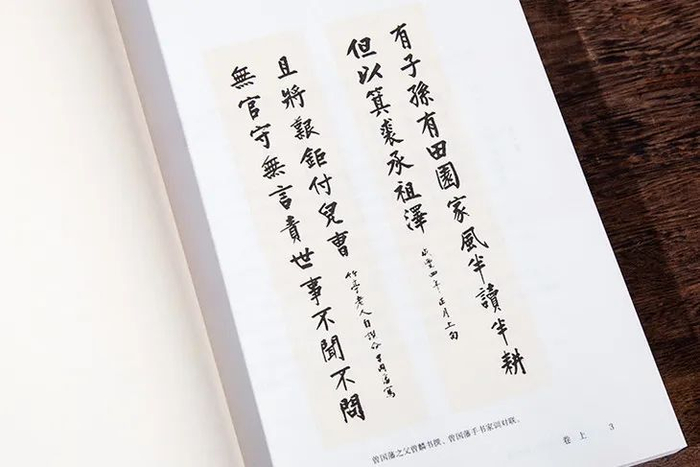 有子孫有田園家風半讀半耕
但以箕裘承祖澤
咸豐四年正月上旬
無官守無言責世事不聞不問
且將艱鉅付兒曹
竹亭老人自撰命男國藩寫
曾国藩之父曾麟书撰、曾国藩手书家训对联。
卷上 3